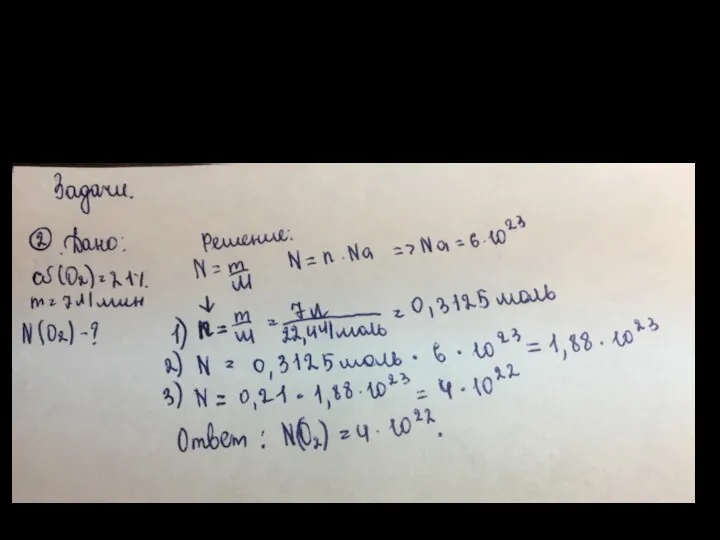 Задачи.
② Дано:
ω(O₂)=21%.
m=7л/мин
N(O₂)-?
Решение:
N = m/M N = n · Na => Na = 6·10²³
↓
1) n = m/M = 7л/22,4л/моль = 0,3125 моль
2) N = 0,3125 моль · 6 · 10²³ = 1,88 · 10²³
3) N = 0,21 · 1,88 · 10²³ = 4 · 10²²
Ответ: N(O₂) = 4 · 10²².